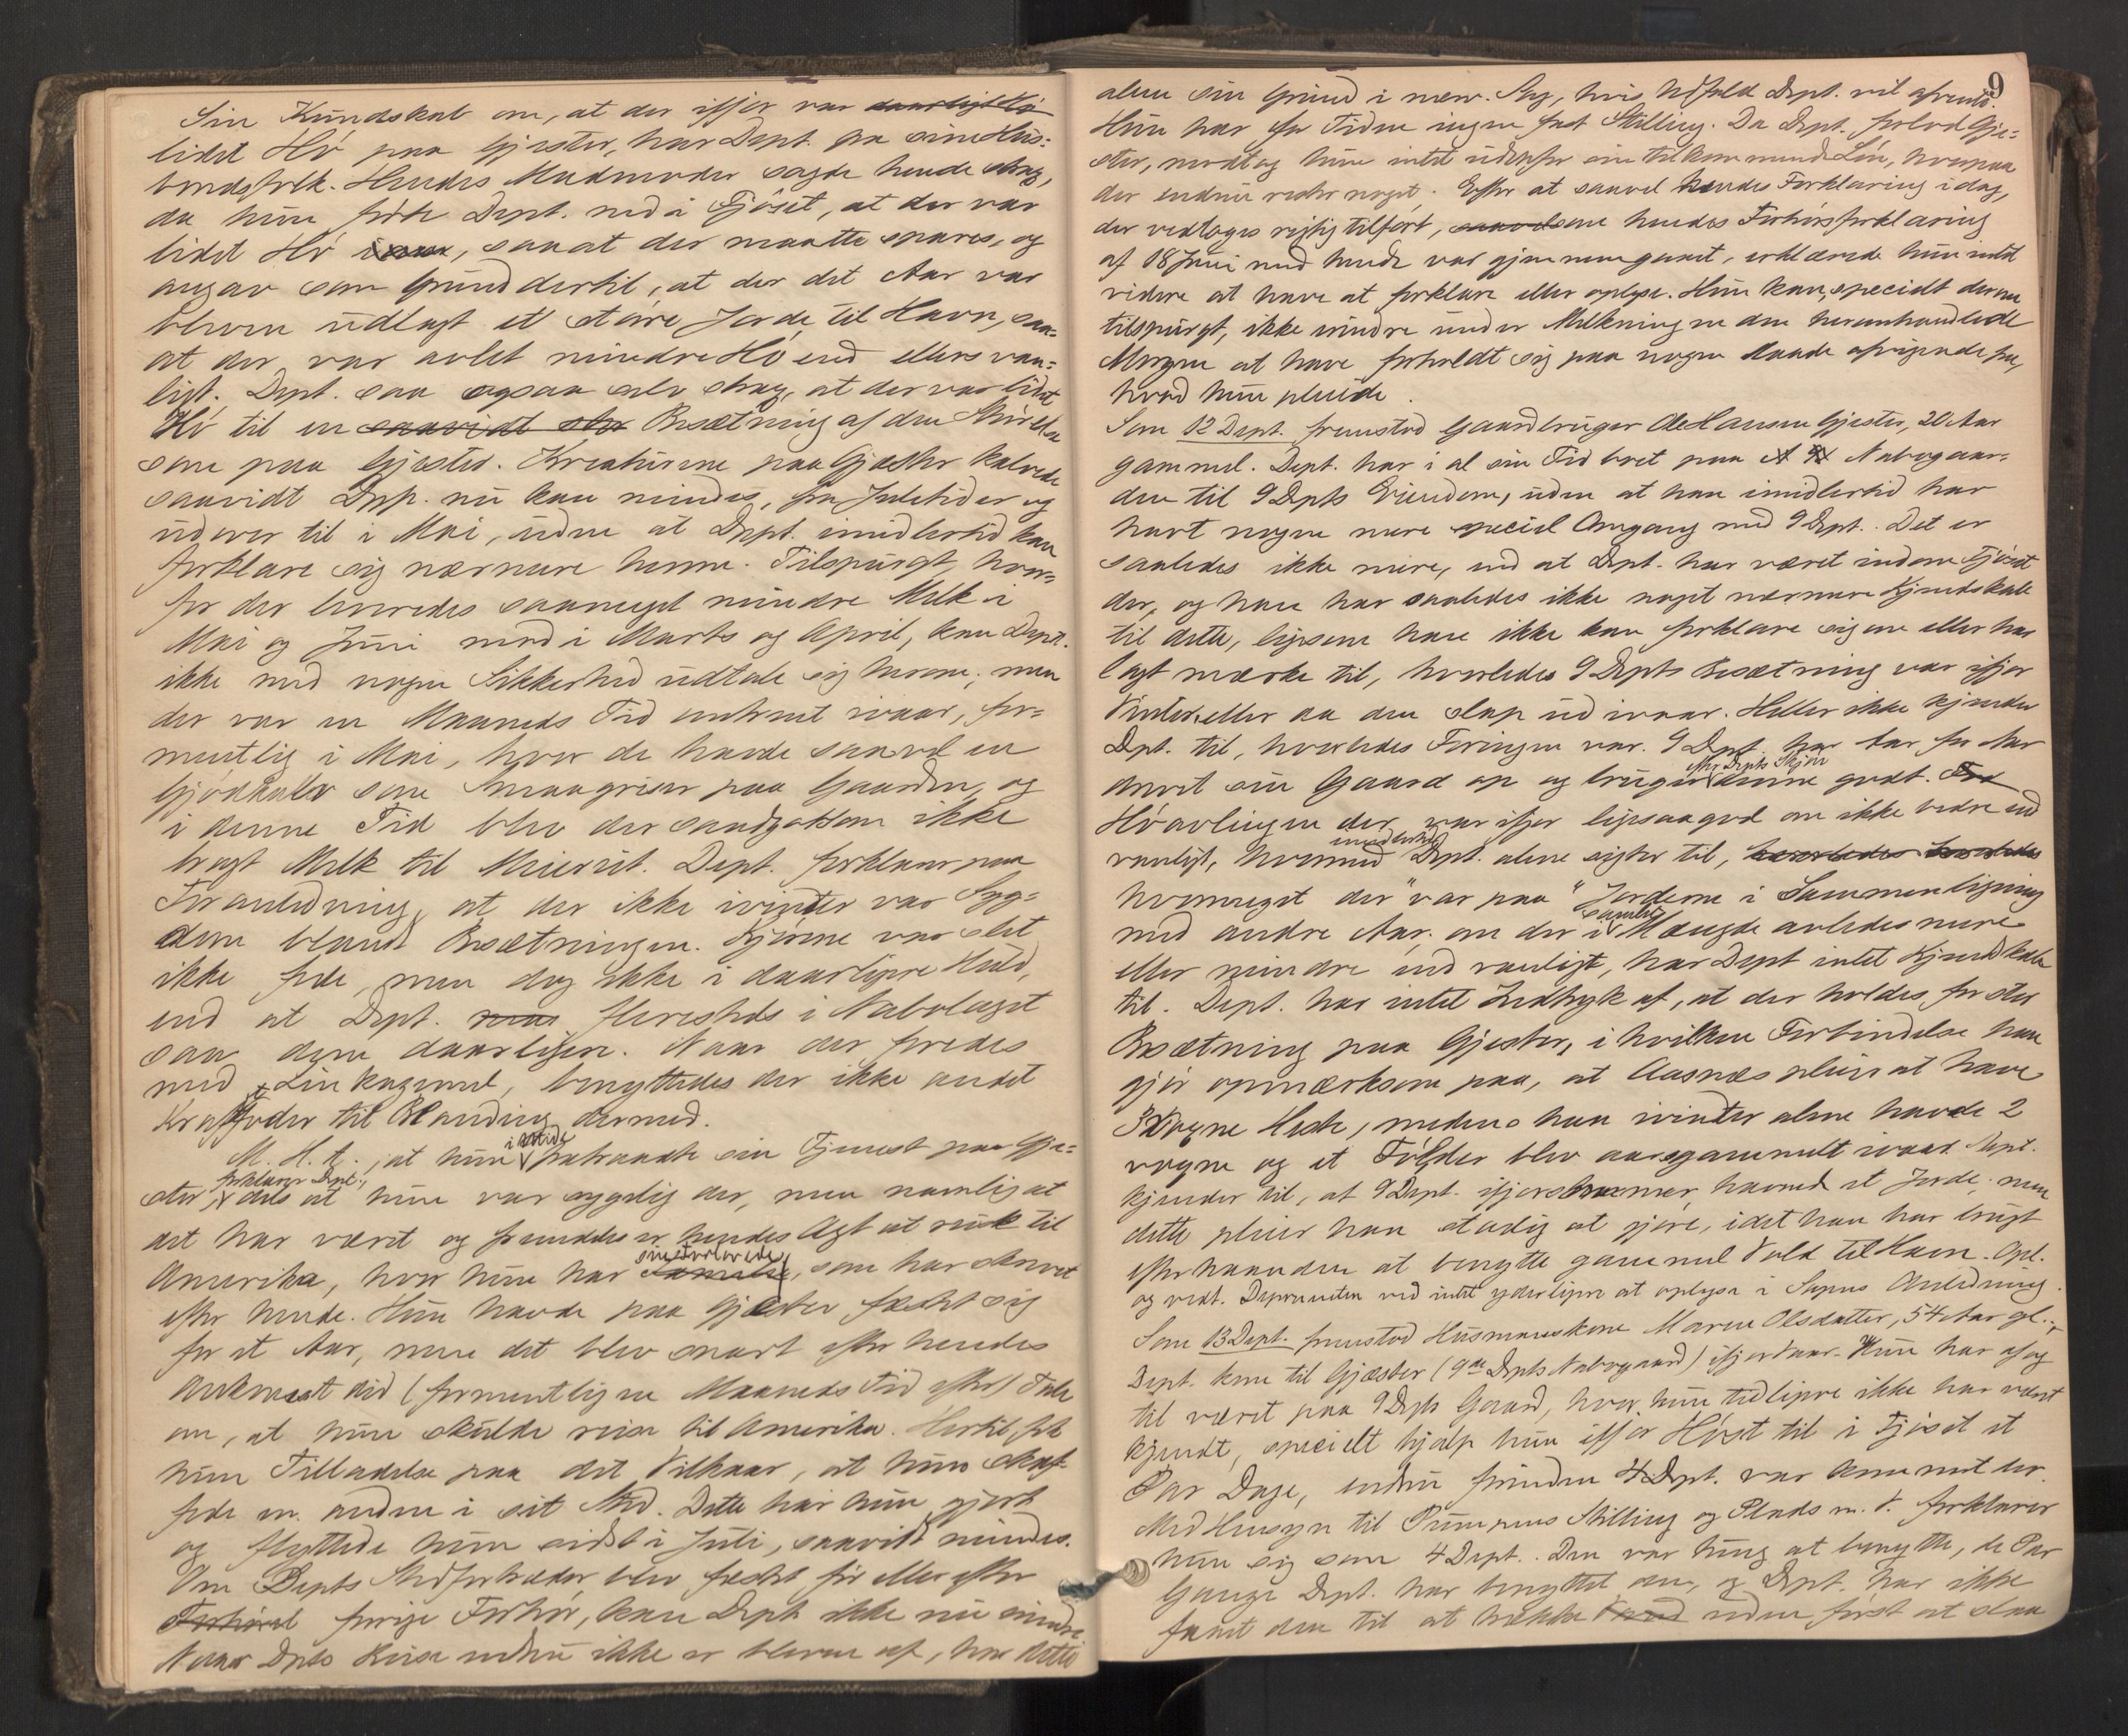 Sin Kundskab om, at der ifjor var daarligt Hö
lidet Hö paa Gjester, har Dept. fra sine Hus-
bondsfolk. Hendes Madmoder sagde hende strax,
da hun fulgte Dept. ned i Fjöset, at der var
lidet Hö, saa at der maatte spares, og
angav som Grund dertil, at der det Aar var
bleven udlagt et större Jorde til Havn, saa-
at der var avlet mindre Hö end ellers van-
ligt. Dept. saa ogsaa selv strax, at der var lidet
Hö til en saavidt stor Besætning af den Störrelse
som paa Gjester. Kreaturene paa Gjester kalvede
saavidt Dep. nu kan mindes, fra Juletider og
udover til i Mai, uden at Dept. imidlertid kan
forklare sig nærmere herom. Tilspurgt, hvor-
for der leveredes saameget mindre Melk i
Mai og Juni mod i Marts og April, kan Dept.
ikke med nogen Sikkerhed udtale sig herom; men
der var en Maaneds Tid omtrent ivaar, for-
mentlig i Mai, hvor de havde saavel en
Gjödkalv som Smaagriser paa Gaarden, og
i denne Tid blev der saagodtsom ikke
bragt Melk til Meieriet. Dept. forklarer paa
Foranledning, at der ikke ivinter var Syg-
dom blandt Besætningen. Kjörne var slet
ikke fede, men dog ikke i daarligere Huld,
end at Dept. flereteds i Nabolaget
saa dem daarligere. Naar der foredes
med Linkagemel, benyttedes der ikke andet
Kraftfoder til Blanding dermed.
M. H. t., at hun i Utide fratraadte sin Tjeneste paa Gje-
ster, forklarer Dept., dels at hun var sygelig der, men navnlig at
det har været og fremdeles er hendes Agt at reise til
Amerika, hvor hun har sin Forlovede, som har skrevet
efter hende. Hun havde paa Gjester fæstet sig
for et Aar, men det blev snart efter hendes
Ankomst did (formentlig en Maaneds Tid efter) Tale
om, at hun skulde reise til Amerika. Hertil fik
hun Tilladelse paa det Vilkaar, at hun skaf-
fede en anden i sit Sted. Dette har hun gjort
og flyttede hun sidst i Juli, saavidt mindes.
Om Depts Stedfortræder blev fæstet för eller efter
Forhöret forrige Forhör, kan Dept. ikke nu erindre
Naar Depts Reise endnu ikke er bleven af, har dette
9
alene sin Grund i nærv. Sag, hvis Udfald Dept. vil afvente.
Hun har for Tiden ingen fast Stilling. Da Dept. forlod Gje-
ster, modtog hun intet udenfor sin tilkommende Lön, hvorpaa
der endnu rester noget. Efter at saavel hendes Forklaring idag,
der vedtoges rigtig tilfört, saavelsom hendes Forhörsforklaring
af 18 Juni med hende var gjennemgaaet, erklærede hun intet
videre at have at forklare eller oplyse. Hun kan, specielt derom
tilspurgt, ikke erindre under Melkningen den heromhandlede
Morgen at have forholdt sig paa nogen Maade afvigende fra,
hvad hun pleiede.
Som 12 Dept. fremstod Gaardbruger Ole Hansen Gjester, 20 Aar
gammel. Dept. har i al sin Tid boet paa Nabogaar-
den til 9 Depts Eiendom, uden at han imidlertid har
havt nogen mere speciel Omgang med 9 Dept. Det er
saaledes ikke mere, end at Dept. har været indom Fjöset
der, og han har saaledes ikke noget nærmere Kjendskab
til dette, ligesom han ikke kan forklare sig om eller har
lagt mærke til, hvorledes 9 Depts Besætning var ifjor
Vinter, eller da den slap ud ivaar. Heller ikke kjender
Dpt. til, hvorledes Foringen var. 9 Dept. har Aar for Aar
drevet sin Gaard op og bruger efter Depts Skjön denne godt.
Höavlingen der var ifjor ligesaa god om ikke bedre end
vanligt, hvormed imidlertid Dept. alene sigter til, hvorledes
hvormeget der "var paa" Jorderne i Sammenligning
med andre Aar; om der i samlet Mængde avledes mere
eller mindre end vanligt, har Dept intet Kjendskab
til. Dept. har intet Indtryk af, at der holdes for stor
Besætning paa Gjester, i hvilken Forbindelse han
gjör opmærksom paa, at Aasnæs pleier at have
3 voxne Heste, medens han ivinter alene havde 2
voxne og et Föl, der blev aarsgammelt ivaar. Dept.
kjender til, at 9 Dept. ifjorsommer havned et Jorde; men
dette pleier han stadig at gjöre, idet han har brugt
efterhaanden at benytte gammel Vold til Havn. Opl.
og vedt. Deponenten ved intet yderligere at oplyse i Sagens Anledning.
Som 13 Dept. fremstod Husmandskone Maren Olsdatter, 54 Aar gl.
Dept. kom til Gjæster (9de Depts Nabogaard) ifjorvaar. Hun har af og
til været paa 9 Depts Gaard, hvor hun tidligere ikke har været
kjendt, specielt hjalp hun ifjor Höst til i Fjöset et
Par Dage, endnu förinden 4 Dept. var kommet der.
Med Hensyn til Pumpens Stilling og Plads m. V. forklarer
hun sig som 4 Dept. Den var tung at benytte, de Par
Gange Dept. har benyttet den, og Dept. har ikke
faaet den til at trække Vand uden först at slaa